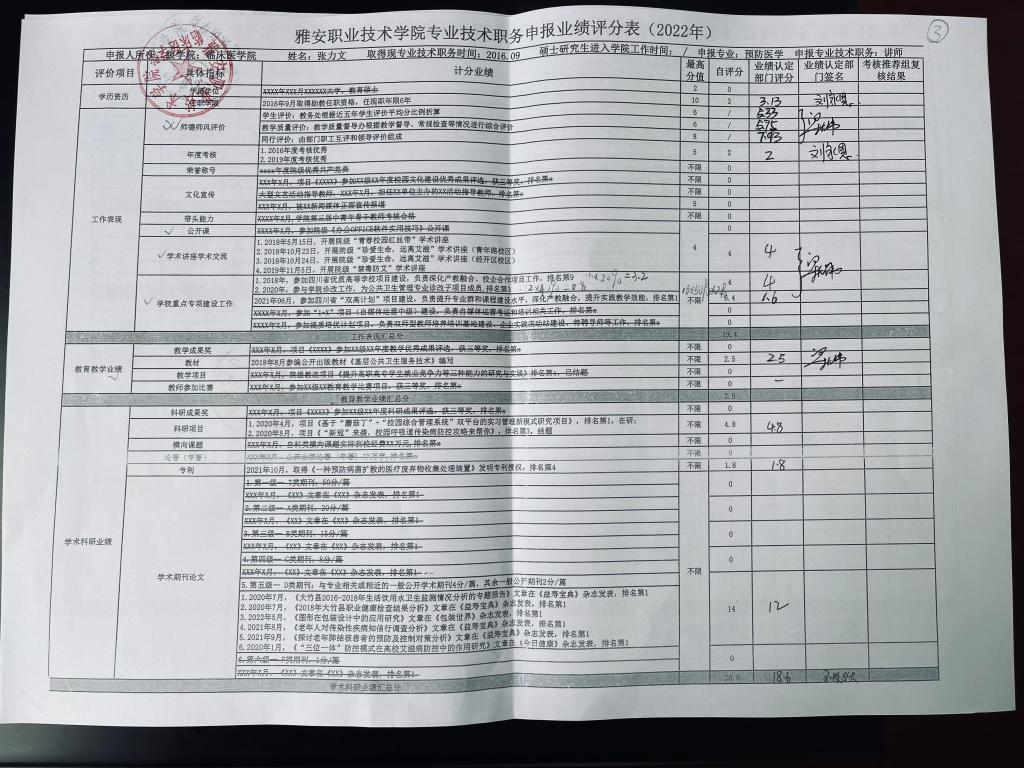 ③
雅安职业技术学院专业技术职务申报业绩评分表（2022年）
临床医学院 姓名：张力文 取得现专业技术职务时间：2016.09 硕士研究生进入学院工作时间： / 申报专业：预防医学 申报专业技术职务：讲师
评价项目 具体指标 计分业绩 最高分值 自评分 业绩认定部门评分 业绩认定部门签名 考核推荐组复核结果
学历资历 学历学位 XXXX年XXX月XXXXXX大学，教育硕士 2 0
任职年限 2016年9月取得助教任职资格，任现职年限6年 10 3 3.13
工作表现 师德师风评价 学生评价：教务处根据近五年学生评价平均分比例折算 6 /
教学质量评价：教学质量督导办根据教学督导、常规检查等情况进行综合评价 6 /
同行评价：由部门职工互评和领导评价组成 8 / 7.93
年度考核 1.2016年度考核优秀 5 2 2
2.2019年度考核优秀
荣誉称号 xxxx年度院级优秀共产党员 不限 0
文化宣传 XXX年X月，项目《XXXX》参加XX级XX年度校园文化建设优秀成果评选，获三等奖，排名第x 不限 0
大型文艺活动指导教师，XXX年X月，担任XX单位主办的XX活动指导教师，排名第x 不限 0
XXX年X月，被XX新闻媒体正面宣传报道 5 0
带头能力 XXXX年X月，学院第三届中青年骨干教师考核合格 不限 0
公开课 XXXX年X月，参加院级《办公OFFICE软件实用技巧》公开课 4 0
学术讲座学术交流 1.2018年5月15日，开展院级“青春校园红丝带”学术讲座 4 4
2.2018年10月23日，开展院级“珍爱生命，远离艾滋”学术讲座（青年路校区）
3.2018年10月24日，开展院级“珍爱生命，远离艾滋”学术讲座（经开区校区）
4.2019年11月5日，开展院级“禁毒防艾”学术讲座
学院重点专项建设工作 1.2018年，参加四川省优质高等学校项目建设，负责深化产教融合、校企合作项目工作，排名第9 不限 4 4
2.2020年，参与学院诊改工作，为公共卫生管理专业诊改子项目成员，排名第3
2021年06月，参加四川省“双高计划”项目建设，负责提升专业群和课程建设水平，深化产教融合，提升实践教学效能，排名第1 6.4 1.6
XXXX年X月，参加“1+X”项目（自媒体运营中级）建设，负责自媒体运营考证和培训相关工作，排名第x 0
XXXX年X月，参加提质培优计划项目，负责双师型教师培养培训基地建设、企业实践流动站建设、特聘导师等工作，排名第x 0
工作表现汇总分 19.4
教育教学业绩 教学成果奖 XXX年X月，项目《XXXX》参加XX级XX年度教学优秀成果评选，获三等奖，排名第x 不限 0
教材 2018年8月参编公开出版教材《基层公共卫生服务技术》编写 不限 2.5 2.5
教学项目 XXX年X月，院级教改项目《提升高职高专学生就业竞争力等三种能力的研究与实践》排名第x，已结题 不限 0
教师参加比赛 XXX年X月，参加XX级XX教育教学比赛项目，获三等奖，排名第x 不限 0 —
教育教学业绩汇总分 2.5
学术科研业绩 科研成果奖 XXX年X月，项目《XXXX》参加XX级XX年度科研成果评选，获三等奖，排名第x 不限 0
科研项目 1.2020年4月，项目《基于“蘑菇丁”+“校园综合管理系统”双平台的实习管理新模式研究项目》，排名第1，在研； 不限 4.8 4.8
2.2020年5月，项目《“新冠”来袭，校园呼吸道传染病防控攻略来帮你》，排名第3，结题
横向课题 XXX年X月，自科类横向课题实际到校经费XX万元，排名第x 不限 0
论著（专著） XXX年X月，公开出版论著（专著）XX万字，排名第x 不限 0
专利 2021年10月，取得《一种预防病菌扩散的医疗废弃物收集处理装置》发明专利授权，排名第4 不限 1.8 1.8
学术期刊论文 1.第一级—T类期刊，50分/篇 不限 0
XXX年X月，《XX》文章在《XX》杂志发表，排名第1
2.第二级—A类期刊，20分/篇 0
XXX年X月，《XX》文章在《XX》杂志发表，排名第1
3.第三级—B类期刊，15分/篇 0
XXX年X月，《XX》文章在《XX》杂志发表，排名第1
4.第四级—C类期刊，8分/篇 0
XXX年X月，《XX》文章在《XX》杂志发表，排名第1
5.第五级—D类期刊：与专业相关或相近的一般公开学术期刊4分/篇，其余一般公开期刊2分/篇 14 12
1.2020年7月，《大竹县2016-2018年生活饮用水卫生监测情况分析的专题报告》文章在《益寿宝典》杂志发表，排名第1
2.2020年7月，《2018年大竹县职业健康检查结果分析》文章在《益寿宝典》杂志发表，排名第1
3.2022年5月，《图形在包装设计中的应用研究》文章在《包装世界》杂志发表，排名第1
4.2021年8月，《老年人对传染性疾病知信行调查分析》文章在《益寿宝典》杂志发表，排名第1
5.2021年9月，《探讨老年肺结核患者的预防及控制对策分析》文章在《益寿宝典》杂志发表，排名第1
6.2020年1月，《“三位一体”防控模式在高校艾滋病防控中的作用研究》文章在《今日健康》杂志发表，排名第1
6.第六级—E类期刊，1分/篇 0
XXX年X月，《XX》文章在《XX》杂志发表，排名第1
学术科研业绩汇总分 20.6 18.6